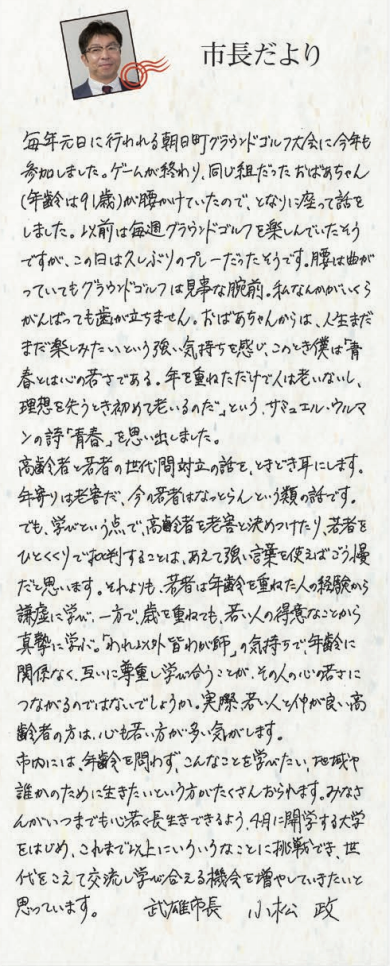 市長だより
毎年元日に行われる朝日町グラウンドゴルフ大会に今年も
参加しました。ゲームが終わり、同じ組だったおばあちゃん
(年齢は91歳)が腰かけていたので、となりに座って話を
しました。以前は毎週グラウンドゴルフを楽しんでいたそう
ですが、この日は久しぶりのプレーだったそうです。腰は曲が
っていてもグラウンドゴルフは見事な腕前。私なんかがいくら
がんばっても歯が立ちません。おばあちゃんからは、人生まだ
まだ楽しみたいという強い気持ちを感じ、このとき僕は「青
春とは心の若さである。年を重ねただけで人は老いないし、
理想を失うとき初めて老いるのだ」という、サミュエル・ウルマ
ンの詩「青春」を思い出しました。
高齢者と若者の世代間対立の話を、ときどき耳にします。
年寄りは老害だ、今の若者はなっとらんという類の話です。
でも、学びという点で、高齢者を老害と決めつけたり、若者を
ひとくくりで批判することは、あえて強い言葉を使えばごう慢
だと思います。それよりも、若者は年齢を重ねた人の経験から
謙虚に学び、一方で、歳を重ねても、若い人の得意なことから
真摯に学ぶ。「われ以外皆わが師」の気持ちで、年齢に
関係なく、互いに尊重し学び合うことが、その人の心の若さに
つながるのではないでしょうか。実際、若い人と仲が良い高
齢者の方は、心も若い方が多い気がします。
市内には、年齢を問わず、こんなことを学びたい、地域や
誰かのために生きたいという方がたくさんおられます。みなさ
んがいつまでも心若く長生きできるよう、4月に開学する大学
をはじめ、これまで以上にいろいろなことに挑戦でき、世
代をこえて交流し学び合える機会を増やしていきたいと
思っています。 武雄市長 小松 政